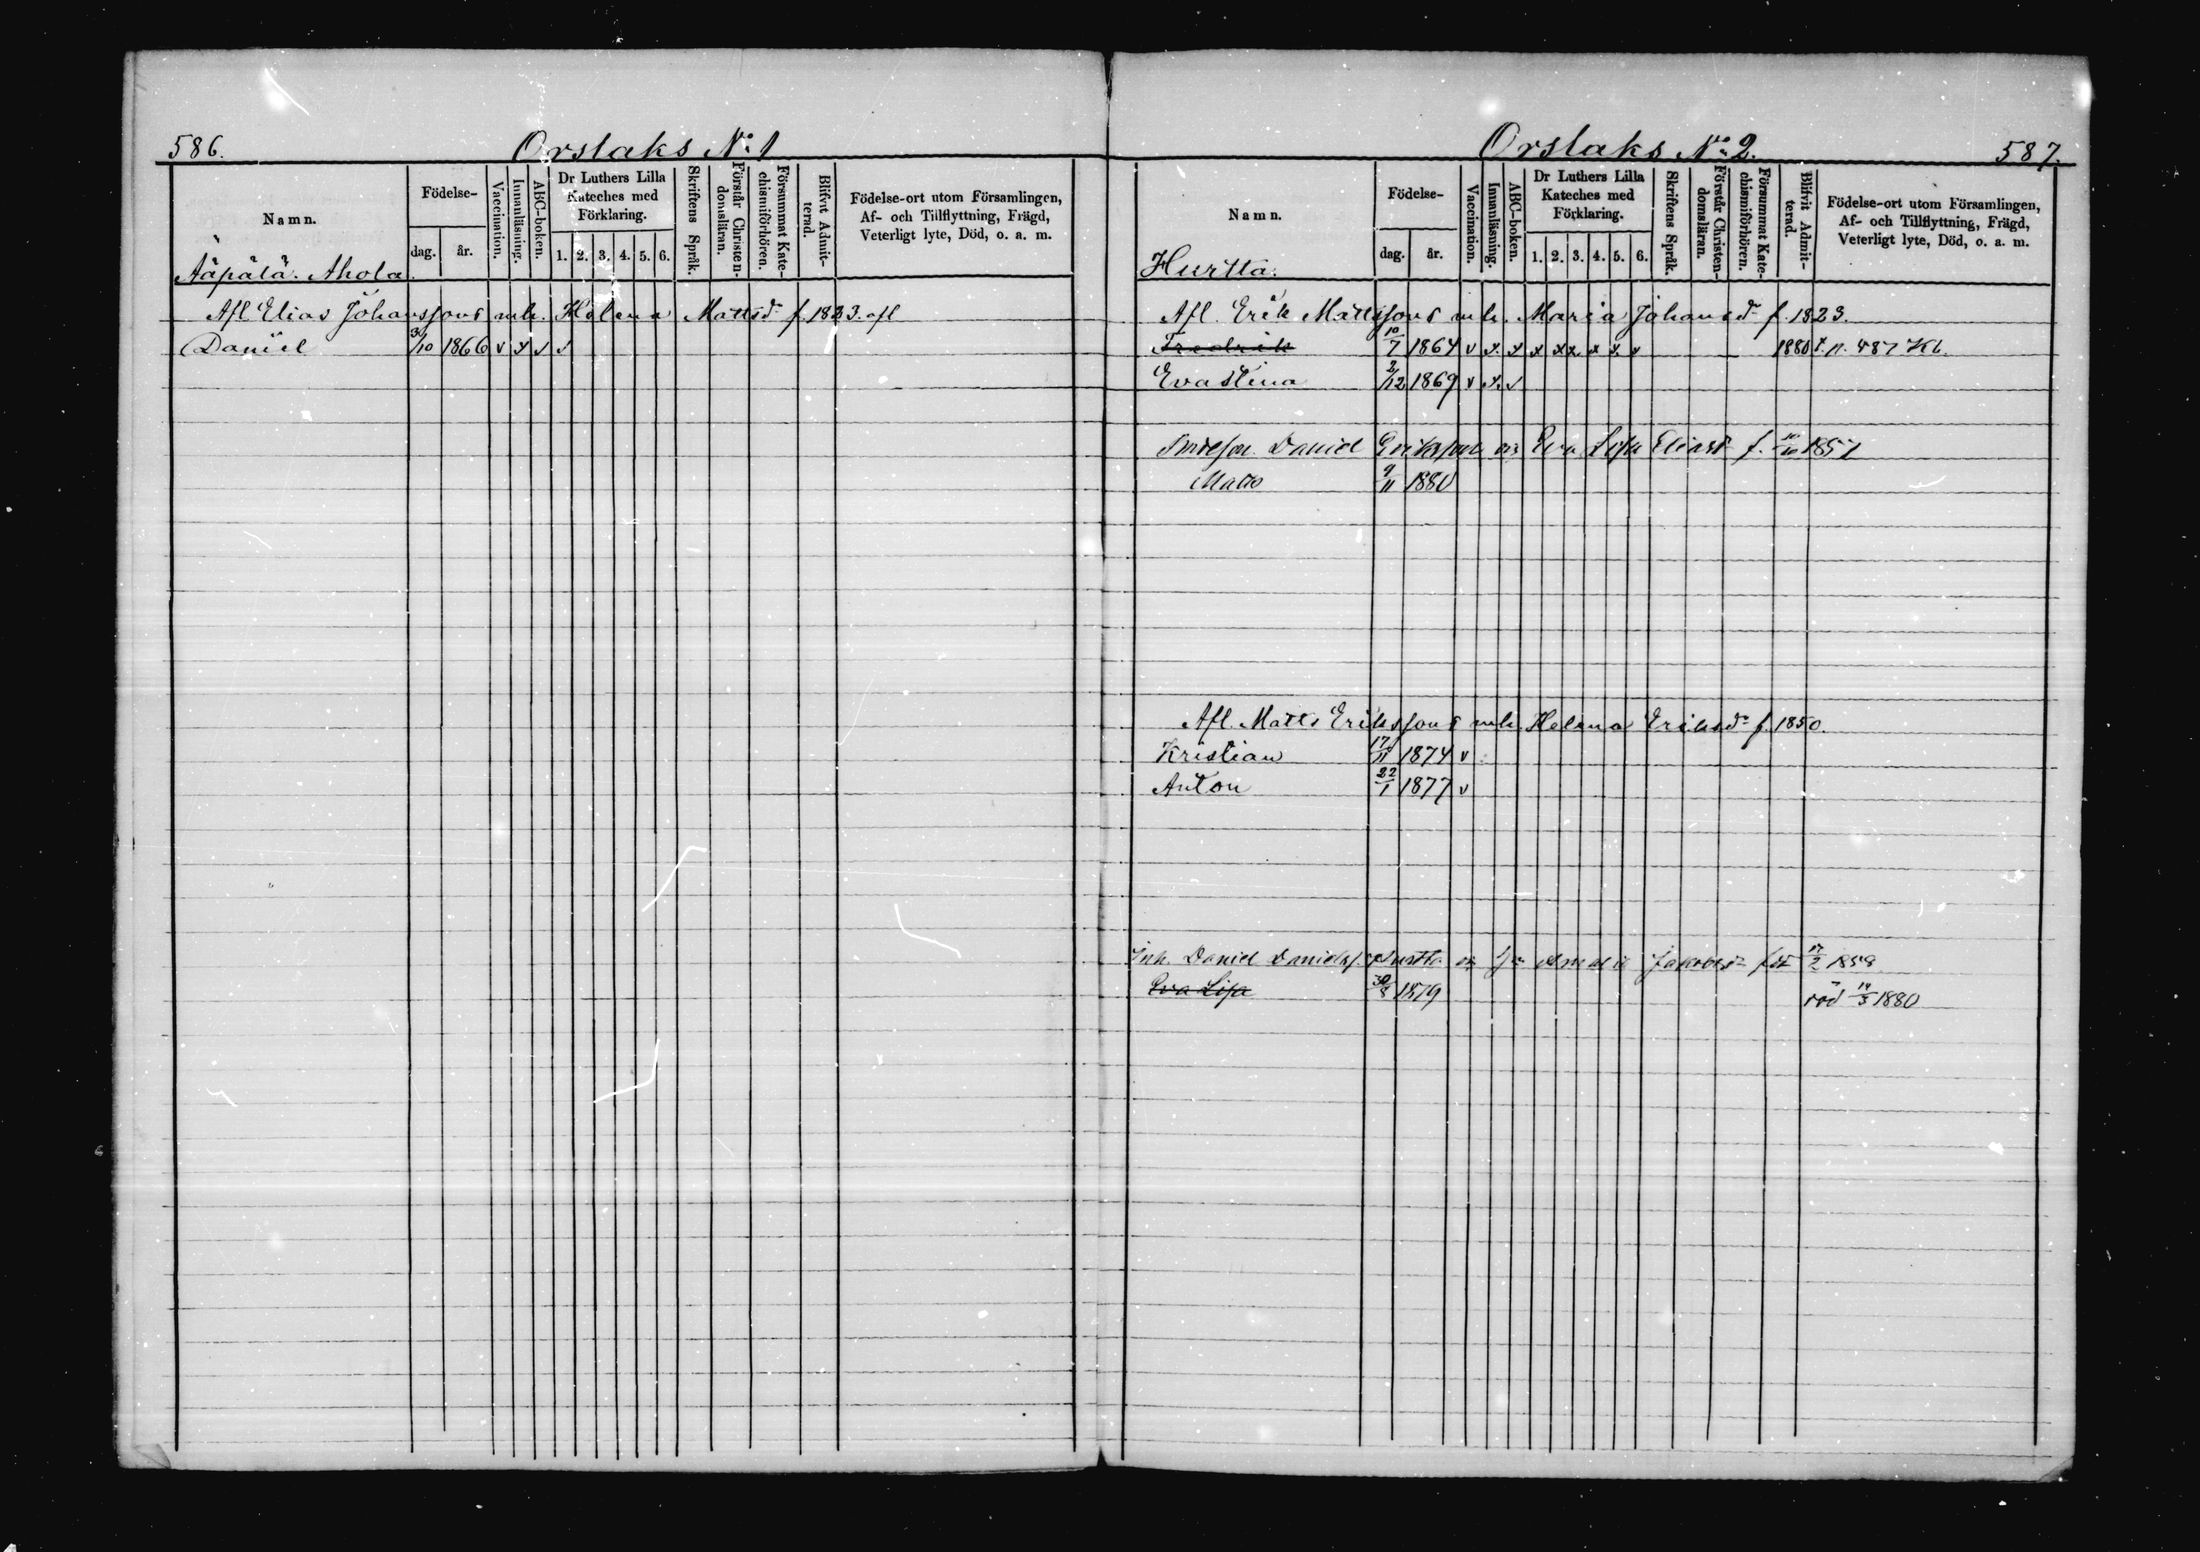 586.
Orslaks No 1
Namn.
Födelse-
dag.
år.
Vaccination.
Innanläsning.
ABC-boken.
Dr Luthers Lilla
Kateches med
Förklaring.
1. 2. 3. 4. 5. 6.
Skriftens Språk.
Förstår Christen-
domsläran.
Försummat Kate-
chismiförhören.
Blifvit Admit-
terad.
Födelse-ort utom Församlingen,
Af- och Tillflyttning, Frägd,
Veterligt lyte, Död, o. a. m.
Ääpälä. Ahola.
Afl. Elias Johanssons enk. Helena Mattsdr f. 1823. afl
Daniel 3/10 1866 v x v v
Orslaks No 2.
587.
Namn.
Födelse-
dag.
år.
Vaccination.
Innanläsning.
ABC-boken.
Dr Luthers Lilla
Kateches med
Förklaring.
1. 2. 3. 4. 5. 6.
Skriftens Språk.
Förstår Christen-
domsläran.
Försummat Kate-
chismiförhören.
Blifvit Admit-
terad.
Födelse-ort utom Församlingen,
Af- och Tillflyttning, Frägd,
Veterligt lyte, Död, o. a. m.
Hurtta.
Afl. Erik Mattssons enk. Maria Johansdr f. 1823.
Fredrik 10/7 1864 v x. x x x x. x x. v 1880 t. p. 487 Kb.
Eva Stina 2/12 1869 v x. v
Daniel Eriksson o Eva Lisa Eliasdr f. 1857
Matts 9/11 1880
Afl. Matts Erikssons enk. Helena Eriksdr f. 1850.
Kristian 17/11 1874 v
Anton 22/1 1877 v
Inh. Daniel Danielss. Hurtta o Amalia Jakobsdr född 17/2 1858
Eva Lisa 30/8 1879 död 14/3 1880